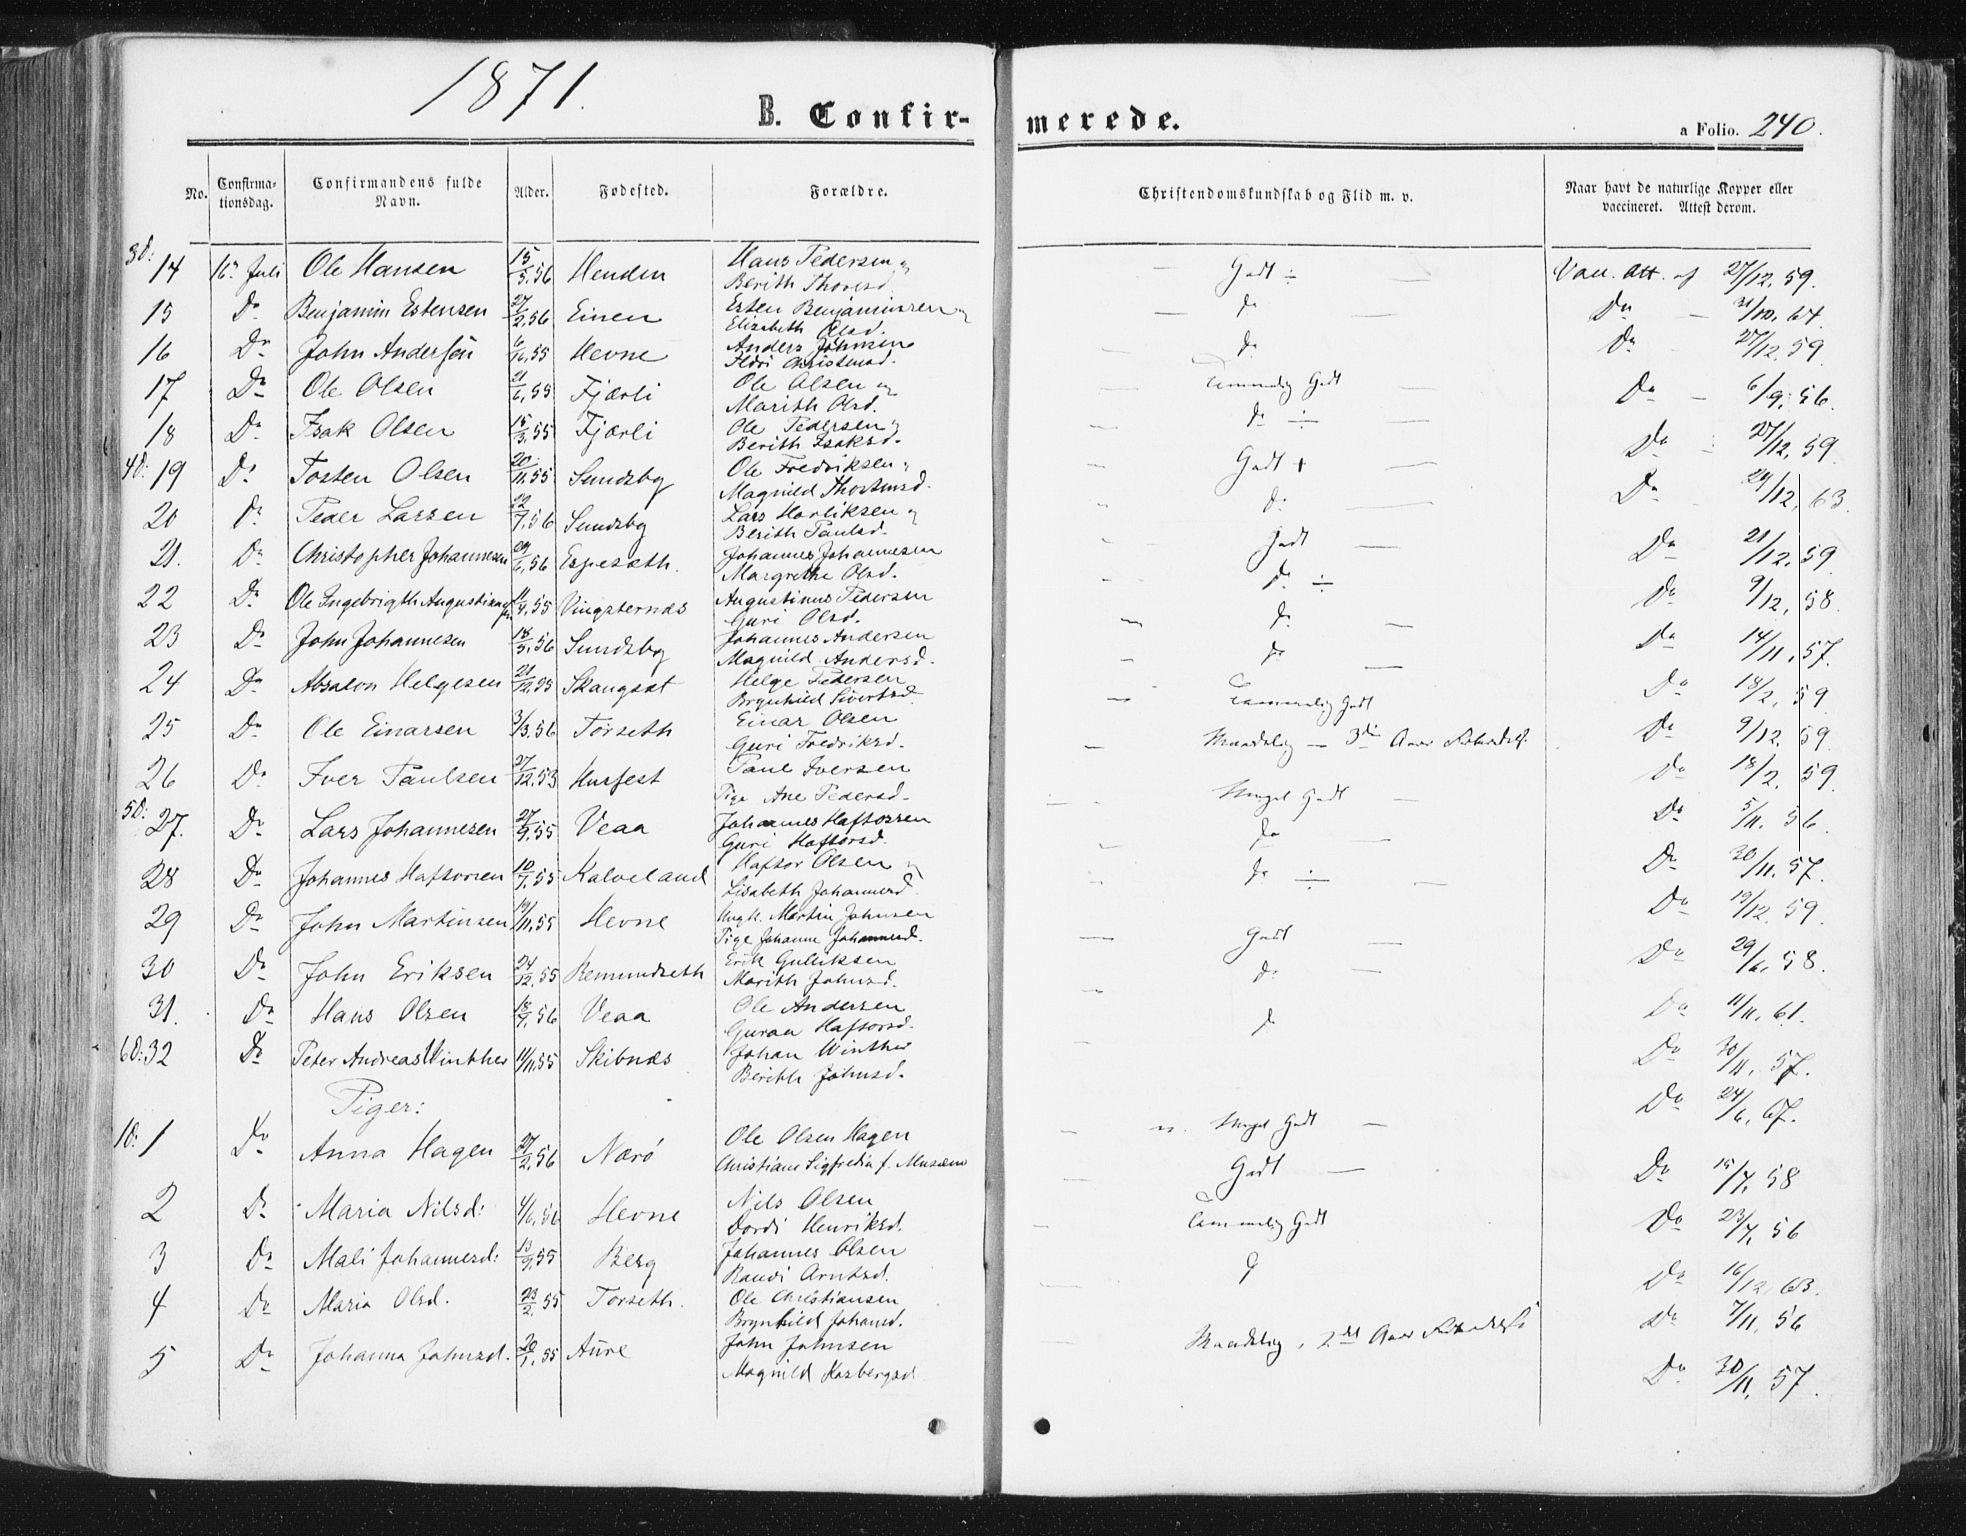 1871.
B. Confir-
merede.
a Folio. 240.
No. Confirma-tionsdag. Confirmandens fulde Navn. Alder. Fødested. Forældre. Christendomskundskab og Flid m. v. Naar havt de naturlige Kopper eller vaccineret. Attest derom.
14 16. Juli Ole Hansen 15/3.56 Henden Hans Pedersen og Berith Thoresd. Godt ÷ Vac. Att. af 27/12.59.
15 Do Benjamin Estensen 27/2.56 Einen Esten Benjaminsen og Elizabeth Olsd. do Do 31/10.64.
16 Do John Andersen 6/10.55 Hevne Anders Johnsen Christensd. do Do 27/12.59.
17 Do Ole Olsen 21/6.55 Fjærli Ole Olsen og Marith Olsd. Temmelig Godt Do 6/9.56.
18 Do Isak Olsen 15/3.55 Fjærli Ole Pedersen og Berith Isaksd. do ÷ Do 27/12.59.
19 Do Tosten Olsen 20/11.55 Sundsby Ole Fredriksen Magnild Thostensd. Godt + Do 29/12.63.
20 Do Peder Larsen 22/7.56 Sundsby Lars Hartiksen og Berith Paulsd. do Do 21/12.59
21. Do Christopher Johannesen 29/6.56 Espesæth. Johannes Johannesen Margrethe Olsd. Godt Do 9/12.58.
22 Do Ole Ingebrigth Augustinussen 11/9.55 Vingsternæs Augustinus Pedersen Guri Olsd. do ÷ Do 14/11.57.
23 Do John Johannesen 18/5.56 Sundsby Johannes Andersen Magnild Andersd. do Do 18/2.59
24 Do Absalon Helgesen 21/12.55 Skaugsæt Helge Pedersen Brynhild Sivertsd. do Do 9/12.59
25 Do Ole Einarsen 3/3.56 Torseth Einar Olsen Guri Fredriksd. Temmelig Godt Do 18/2.59
26 Do Iver Paulsen 27/12.53 Husfest Paul Iversen Pige Ane Pedersd. Maadelig — 3die Aars Do 5/11.56.
27. Do Lars Johannesen 27/9.55 Veaa Johannes Haftorsen Guri Haftorsd. Meget Godt Do 30/11.57.
28 Do Johannes Haftorsen 10/7.55 Kalveland Haftor Olsen og Lisabeth Johannesd. do Do 19/12.59.
29 Do John Martinsen 19/11.55 Hevne Ungk. Martin Johnsen Pige Johanne Johannesd. do ÷ Do 29/6.58.
30 Do John Eriksen 24/12.55 Remundseth Erik Gulliksen Marith Johnsd. Godt Do 11/11.61.
31. Do Hans Olsen 18/7.56 Veaa Ole Andersen Guraa Haftorsd. do Do 30/11.57.
32 Do Peter Andreas Winther 11/11.55 Skibnæs Johan Winther Berith Johnsd. do Do 24/6.67.
Piger:
1 Do Anna Hagen 27/2.56 Nærø Ole Olsen Hagen Christiane Sigfredia f. Musæus Meget Godt Do 15/7.58
2 Do Maria Nilsd: 4/6.56 Hevne Nils Olsen Dordi Henriksd. Godt Do 23/7.56
3 Do Mali Johannesd: 13/9.55 Berg Johannes Olsen Randi Arntsd. Temmelig Godt Do 16/12.63.
4 Do Maria Olsd. 23/2.55 Torseth. Ole Christiansen Brynhild Johansd. do Do 7/11.56
5 Do Johanna Johnsd. 20/1.55 Aure John Johnsen Magnild Kasbergsd. Maadelig, 2det Aars Do 30/11.57.